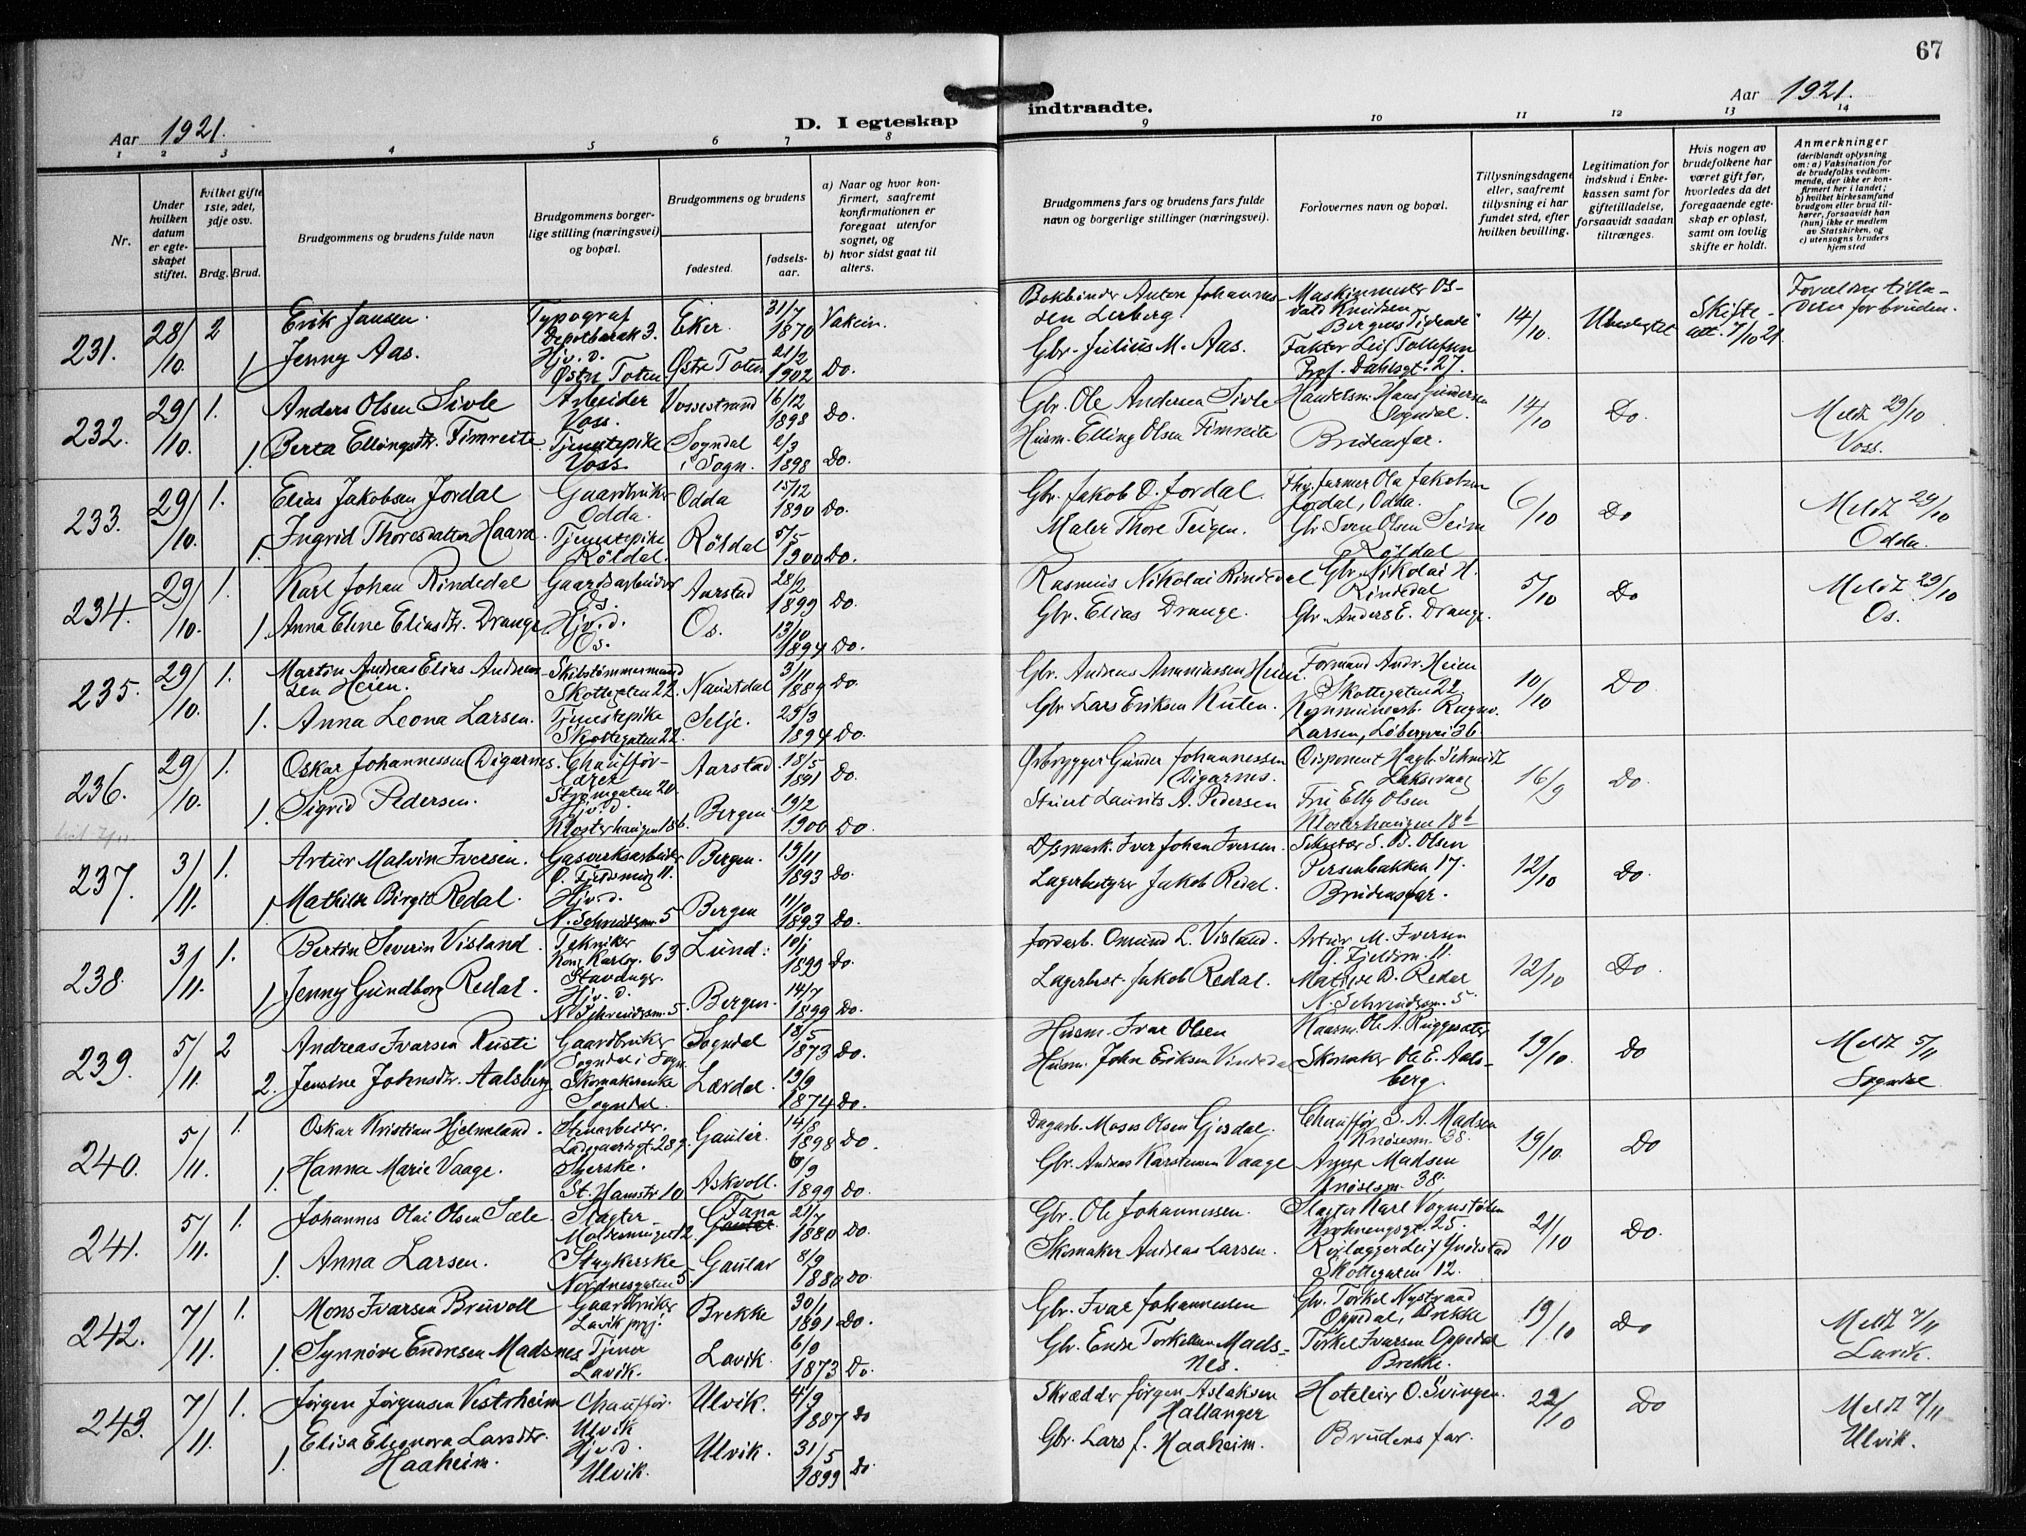 67
Aar 1921.
D. I egteskap indtraadte.
Aar 1921.
1 2 3 4 5 6 7 8 9 10 11 12 13 14
Nr.
Under hvilken datum er egteskapet stiftet.
Hvilket gifte 1ste, 2det, 3dje osv.
Brdg. Brud.
Brudgommens og brudens fulde navn
Brudgommens borgerlige stilling (næringsvei) og bopæl.
Brudgommens og brudens
fødested.
fødselsaar.
a) Naar og hvor konfirmert, saafremt konfirmationen er foregaat utenfor sognet, og
b) hvor sidst gaat til alters.
Brudgommens fars og brudens fars fulde navn og borgerlige stillinger (næringsvei).
Forlovernes navn og bopæl.
Tillysningsdagene eller, saafremt tillysning ei har fundet sted, efter hvilken bevilling.
Legitimation for indskud i Enkekassen samt for giftetilladelse, forsaavidt saadan tiltrænges.
Hvis nogen av brudefolkene har været gift før, hvorledes da det foregaaende egteskap er opløst, samt om lovlig skifte er holdt.
Anmerkninger
(deriblandt oplysning om: a) Vaksination for de brudefolks vedkommende, der ikke er konfirmert her i landet; b) hvilket kirkesamfund brudgom eller brud tilhører, forsaavidt han (hun) ikke er medlem av Statskirken, og c) utensogns bruders hjemsted
231. 28/10. 2 Erik Jansen. Typograf Depotbarak 3. Eker. 31/7 1870 Vaksin.
1 Jenny Aas. Hjv. d. Østre Toten Østre Toten 21/2 1902 Do.
Bokbinder Anton Johannessen Lerberg Maskinmester Osvald Knudsen Bergens Tidende 14/10. Skifteatt. 7/10 21
Gbr. Julius M. Aas. Faktor Leif Tollefsen Prof. Dahlsgt. 27.
232. 29/10. 1. Anders Olsen Sivle Arbeider Voss. Vossestrand 16/12 1898 Do.
1. Berta Ellingsdtr. Fimreite Tjenestepike Voss. Sogndal i Sogn. 2/3 1898 Do.
Gbr. Ole Andersen Sivle Handelsm. Hans Gundersen Sogndal. 14/10 Do. Meldt 29/10 Voss.
Husm. Elling Olsen Fimreite Brudensfar.
233. 29/10. 1. Elias Jakobsen Jordal Gaardbruker Odda. Odda 15/12 1890 Do.
1. Ingrid Thoresdatter Haara Tjenestepike Röldal. Röldal 5/5 1900 Do.
Gbr. Jakob O. Jordal. Ola Jakobsen Jordal, Odda. 6/10 Do Meldt 29/10 Odda.
Maler Thore Teigen. Gbr. Sven Olsen Seim Röldal
234. 29/10. 1. Karl Johan Rindedal Gaardsarbeider Os. Aarstad 28/2 1899 Do.
1. Anna Eline Eliasdtr. Drange Hjv. d. Os. Os. 13/10 1894 Do.
Rasmus Nikolai Rindedal Gbr. Nikolai H. Rindedal 5/10 Do Meldt 29/10 Os.
Gbr. Elias Drange. Gbr. Anders E. Drange.
235. 29/10. 1. Martin Andreas Elias Andreassen Heien. Skibstömmermand Skottegaten 22. Naustdal 3/11 1889 Do.
1. Anna Leona Larsen. Tjenestepike Skottegaten 22. Selje. 23/3 1894 Do.
Gbr. Andreas Ananiassen Heien. Formand Andr. Heien Skottegaten 22. 10/10 Do.
Gbr. Lars Eriksen Larsen, Løbergsvei 36
236. 29/10. 1. Oskar Johannessen Digernes. Chaufførlærer Strømgaten 20 Aarstad. 18/5 1891 Do.
1. Sigrid Pedersen. Hjv. d. Klosterhaugen 18b. Bergen 19/2 1900 Do.
Ølbrygger Gunder Johannessen Digernes. Disponent Hagb. Schmidt Laksevaag 16/9 Do.
Stuert Laurits A. Pedersen Frk. Elly Olsen Klosterhaugen 18b
237. 3/11. 1. Artur Malvin Iversen. Gasverksarbeider Ø. Fjeldsmug 11. Bergen. 13/11 1893 Do.
1. Mathilde Birgit Redal. Hjv. d. 5 Bergen 11/10 1893 Do.
Iver Johan Iversen. S. B. Olsen Persenbakken 17. 12/10 Do.
Lagerbetjent Jakob Redal. Brudensfar.
238. 3/11. 1. Bertin Severin Visland. Tekniker 63 Stavanger Lund. 10/1 1899 Do.
1 Jenny Gundborg Redal. Hjv. d. 5. Bergen. 14/7 1899 Do.
Jordarb. Omund L. Visland. Artur M. Iversen Ø. Fjeldsm. 11. 12/10 Do.
Lagerbest. Jakob Redal. Matilde B. Redal 5
239. 5/11. 2 Andreas Ivarsen Rusti Gaardbruker Sogndal i Sogn. Sogndal 18/5 1873 Do.
2. Jensine Johnsdtr. Aalsberg Skomakerenke Sogndal. Lærdal. 19/9 1874 Do.
Husm. Ivar Olsen Ole A. 19/10. Do Meldt 5/11 Sogndal
Husm. John Eriksen Vindedal Skomaker Ole E. Aalsberg.
240. 5/11. 1. Oskar Kristian Hjelmeland. Stenarbeider. Ladegaardsgt. Gaular. 14/8 1898 Do.
1. Hanna Marie Vaage. Syerske. St. Hansstr. 10 Askvoll. 6/9 1899 Do.
Dagarb. Moses Olsen Gjesdal. Chauffør S. A. Madsen Knøsesm. 38. 19/10. Do
Gbr. Andreas Karstensen Vaage Anna Madsen Knøsesm. 38.
241. 5/11. 1. Johannes Olai Olsen Sæle. Slagter Fana 21/7 1880 Do.
1. Anna Larsen. Strykerske Nordnesgaten 5. Gaular 8/9 1880 Do.
Gbr. Ole Johannessen. Slagter Karl Vognstølen Krohnengsgt. 25. 21/10 Do.
Skomaker Andreas Larsen. Skottegaten 12.
242. 7/11. 1. Mons Ivarsen Bruvoll Gaardbruker Lavik prgj. Brekke 30/1 1891 Do.
1. Synnøve Endresen Madsnes Tjener Lavik. Lavik. 6/9 1873 Do.
Gbr. Ivar Johannessen Gbr. Torkel Nystrand Oppedal, Brekke 19/10 Do Meldt 7/11 Lavik.
Gbr. Endre Torkellsen Madsnes. Torkel Ivarsen Oppedal Brekke.
243. 7/11. 1. Jørgen Jørgensen Vestrheim Chauffør. Ulvik Ulvik. 4/9 1887 Do
1. Elisa Eleonora Larsdtr. Haaheim. Hjv. d. Ulvik. Ulvik. 31/5 1899 Do
Skrædder Jørgen Aslaksen Hallanger Hoteleier O. Svingen. 22/10 Do Meldt 7/11 Ulvik.
Gbr. Lars J. Haaheim. Brudens far.